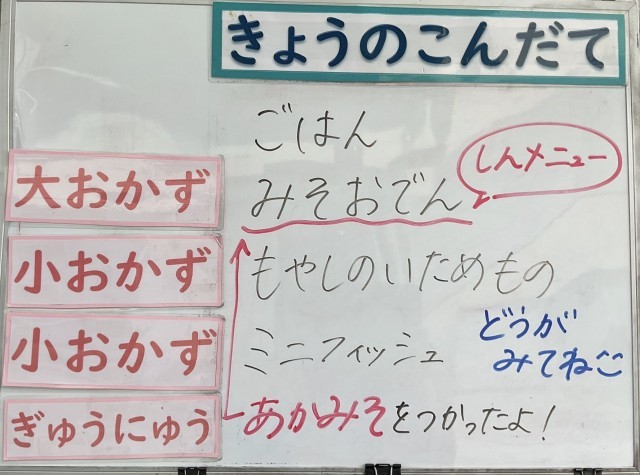 きょうのこんだて
ごはん
大おかず みそおでん しんメニュー
小おかず もやしのいためもの
小おかず ミニフィッシュ
どうが
みてねこ
ぎゅうにゅう あかみそをつかったよ!